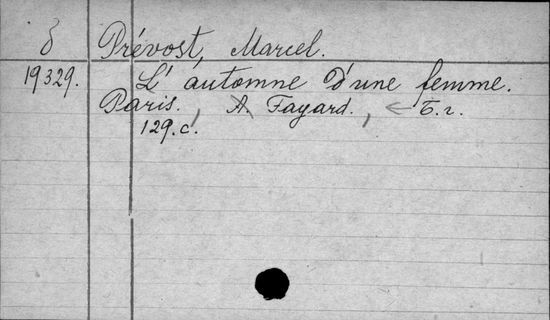 δ Prévost, Marcel.
19329. L'automne d'une femme.
Paris. A. Fayard., ← Б.г.
129.c.